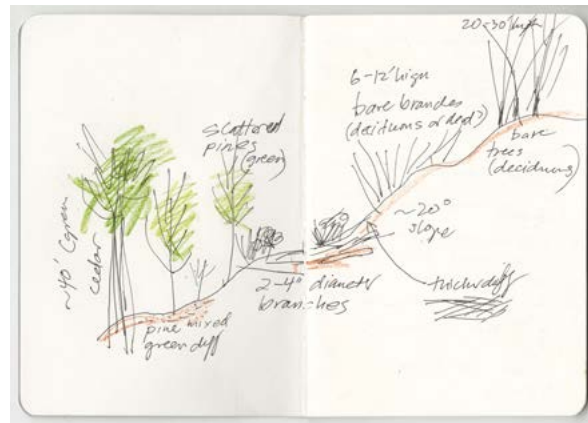 ~40' green
cedar
scattered
pines
(green)
pine mixed
green duff
2-4" diameter
branches
6-12' high
bare branches
(deciduous or dead?)
20-30' high
bare
trees
(deciduous)
~20°
slope
thicker duff